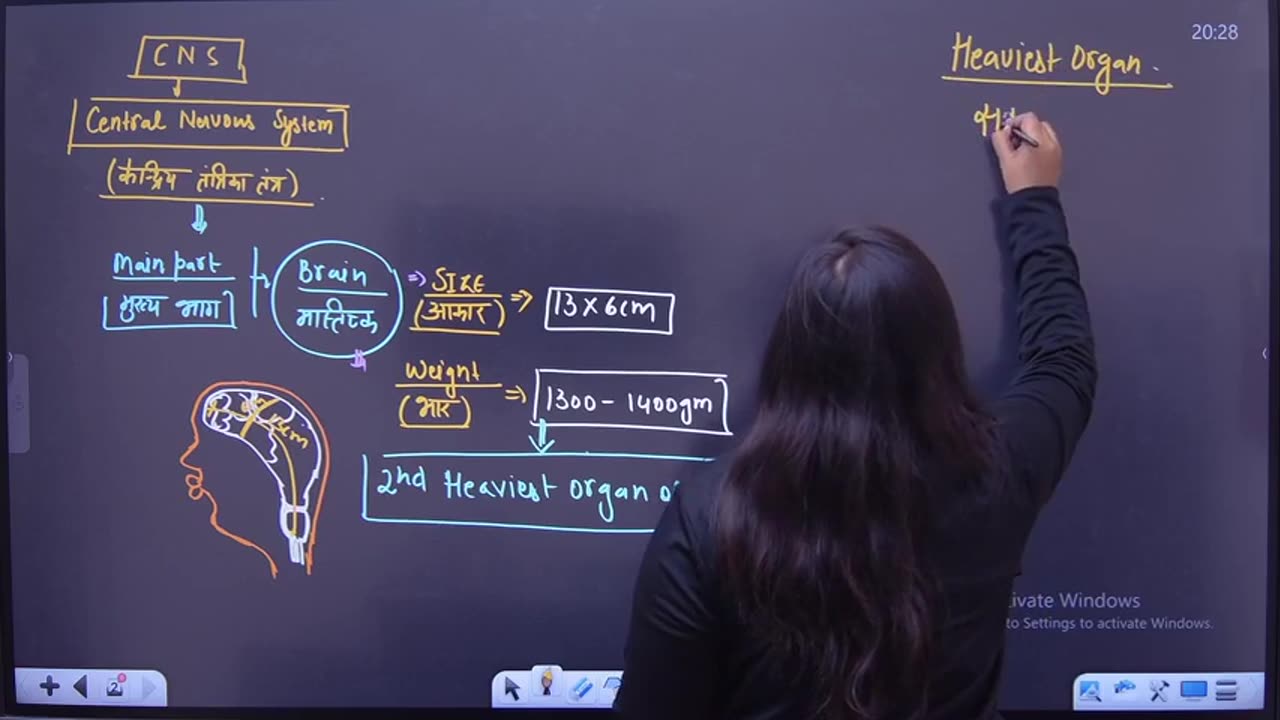 20:28
CNS
Central Nervous System
(केन्द्रिय तंत्रिका तंत्र)
Main part
मुख्य भाग
Brain
मास्तिष्क
⇒ SIZE
(आकार)
⇒ 13 x 6cm
Weight
(भार)
⇒ 1300 - 1400gm
2nd Heaviest Organ
Heaviest Organ.
ivate Windows
to Settings to activate Windows.
2